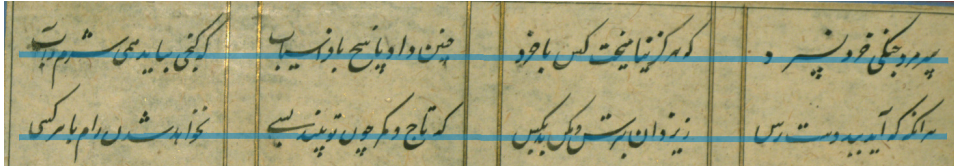 سر مرد جنگی خرد نسپرد که هرگز نیامیخت کین با خرد چنین داد پاسخ بافراسیاب که لختی بباید همی شرم و آب
هر آنکه که آید ببد دست رس ز یزدان بترس و مکن بد بکس که تاج و کمر چون تو بیند بسی نخواهد شدن رام با هر کسی